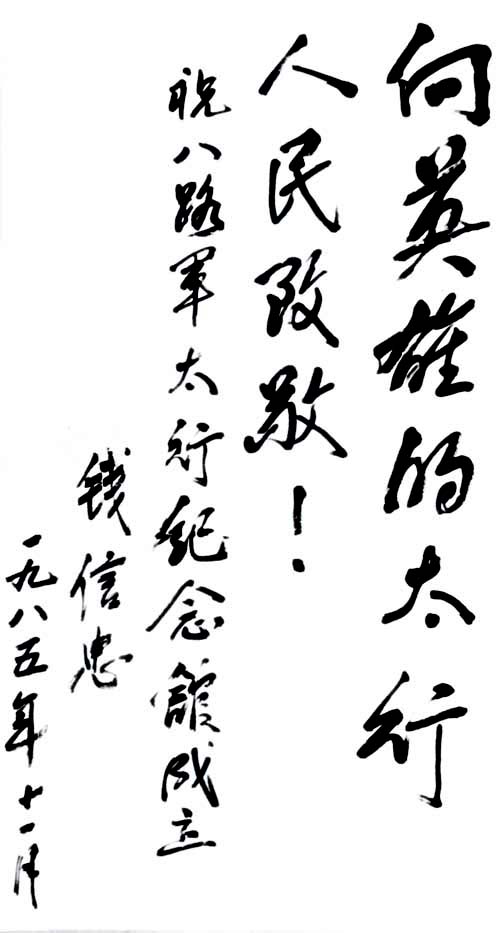 向英雄的太行
人民致敬！
祝八路军太行纪念馆成立
钱信忠
一九八五年十一月